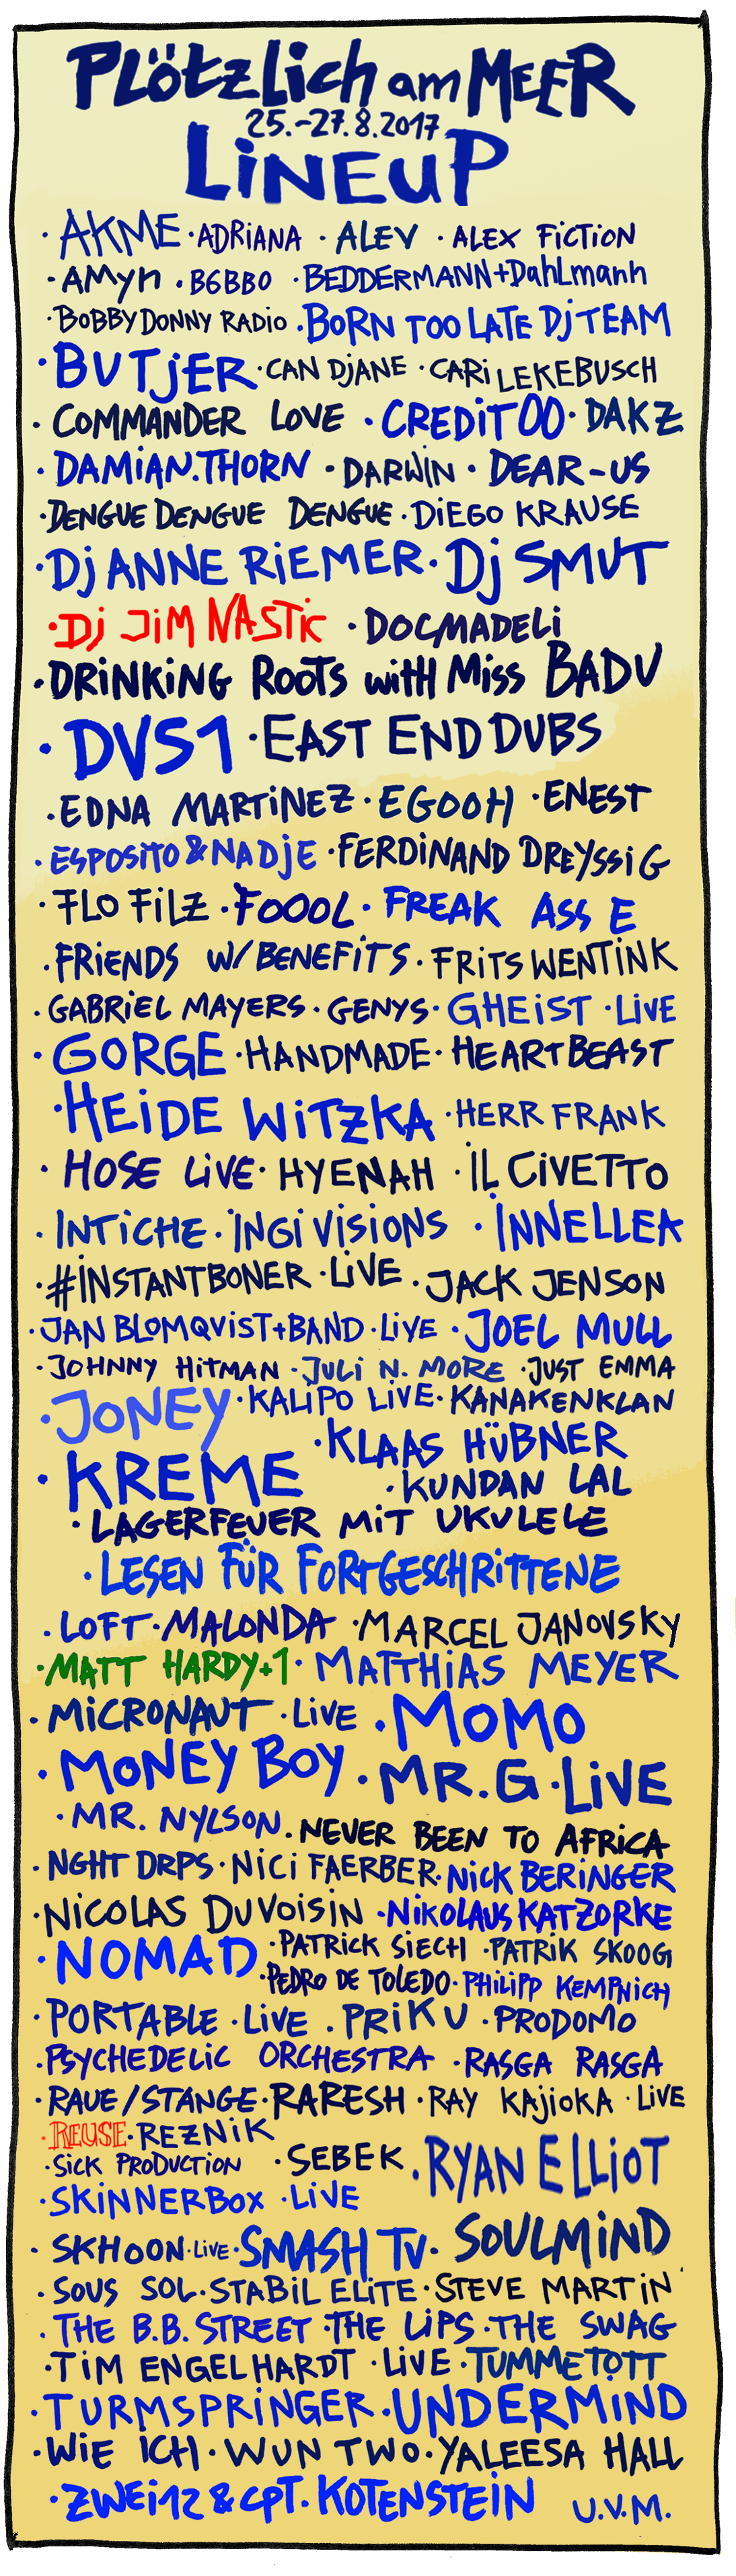 PLötzLich am MEER
25.-27.8.2017
LiNEUP
· AKME · ADRiANA · ALEV · ALEX FiCTiON
· AMYn · BGBBO · BEDDERMANN+DahLmann
· BOBBY DONNY RADiO · BORN TOO LATE Dj TEAM
· BUTjER · CAN DjANE · CARi LEKEBUSCH
· COMMANDER LOVE · CREDiT 00 · DAKZ
· DAMiAN.THORN · DARWiN · DEAR-US
· DENGUE DENGUE DENGUE · DiEGO KRAUSE
· Dj ANNE RiEMER · Dj SMUT
· Dj JiM NASTiC · DOCMADELi
· DRiNKiNG ROOTS witH Miss BADU
· DVS1 · EAST END DUBS
· EDNA MARTiNEZ · EGOOH · ENEST
· ESPOSiTO & NADjE · FERDiNAND DREYSSiG
· FLO FiLZ · FOOOL · FREAK ASS E
· FRiENDS W/ BENEFiTS · FRiTS WENTiNK
· GABRiEL MAYERS · GENYS · GHEiST · LiVE
· GORGE · HANDMADE · HEARTBEAST
· HEiDE WiTZKA · HERR FRANK
· HOSE LiVE · HYENAH · iL CiVETTO
· INTiCHE · iNGi ViSiONS · iNNELLEA
· #iNSTANTBONER · LiVE · JACK JENSON
· JAN BLOMQViST+BAND · LiVE · JOEL MULL
· JOHNNY HiTMAN · JULi N. MORE · JUST EMMA
· JONEY · KALiPO LiVE · KANAKENKLAN
· KLAAS HÜBNER
· KREME · KUNDAN LAL
· LAGERFEUER MiT UKULELE
· LESEN FÜR FORTGESCHRiTTENE
· LOFT · MALONDA · MARCEL JANOVSKY
· MATT HARDY+1 · MATTHiAS MEYER
· MiCRONAUT · LiVE · MOMO
· MONEY BOY · MR.G · LiVE
· MR. NYLSON · NEVER BEEN TO AFRiCA
· NGHT DRPS · NiCi FAERBER · NiCK BERiNGER
· NiCOLAS DUVOiSiN · NiKOLAUS KATZORKE
· NOMAD · PATRiCK SiECH · PATRiK SKOOG
· PEDRO DE TOLEDO · PHiLiPP KEMPNiCH
· PORTABLE · LiVE · PRiKU · PRODOMO
· PSYCHEDELiC ORCHESTRA · RASGA RASGA
· RAUE/STANGE · RARESH · RAY KAjiOKA · LiVE
· REUSE · REZNiK
· SiCK PRODUCTiON · SEBEK · RYAN ELLiOT
· SKiNNERBOX · LiVE
· SKHOON · LiVE · SMASH TV · SOULMiND
· SOUS SOL · STABiL ELiTE · STEVE MARTiN
· THE B.B. STREET · THE LiPS · THE SWAG
· TiM ENGELHARDT · LiVE · TUMMETOTT
· TURMSPRiNGER · UNDERMiND
· WiE iCH · WUN TWO · YALEESA HALL
· ZWEi12 & CPT. KOTENSTEiN U.V.M.